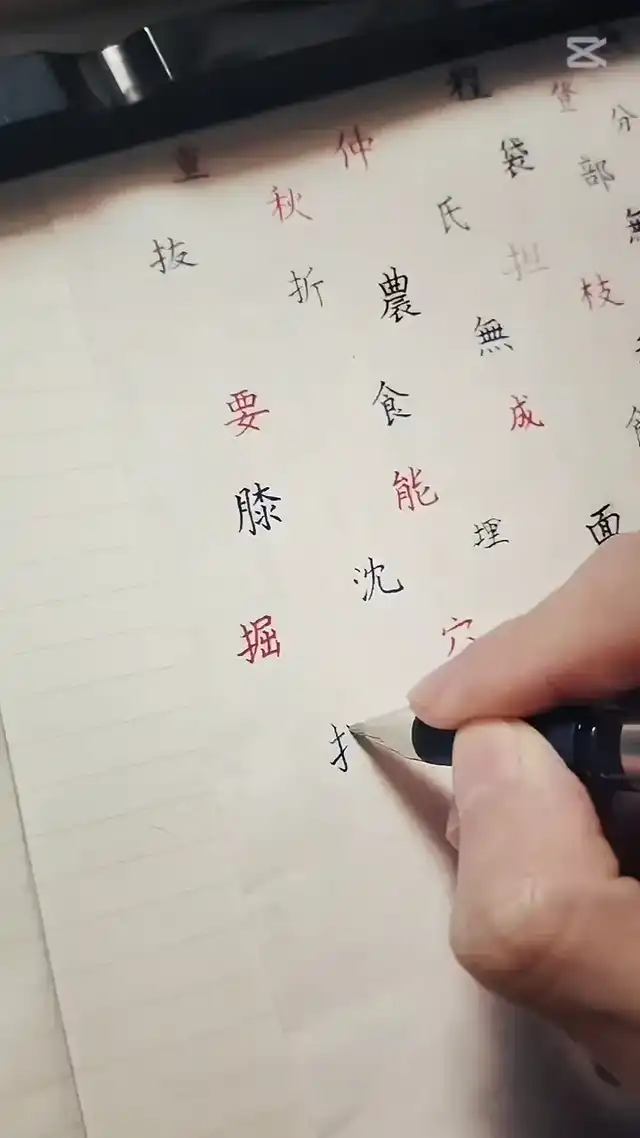 仲
秋
抜
折
要
膝
掘
農
食
能
沈
穴
氏
袋
無
成
埋
部
担
枝
面
分
無